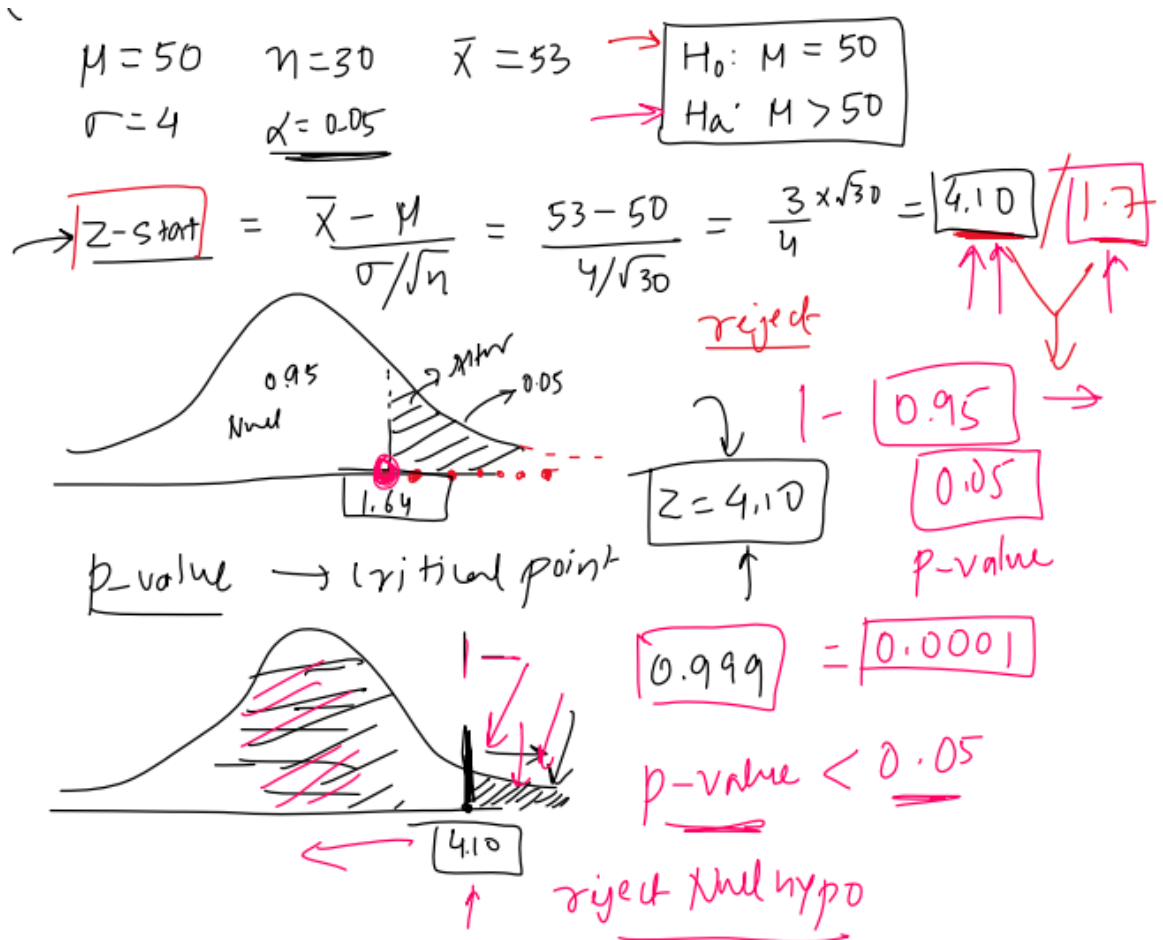 μ = 50 n = 30 x̄ = 53
σ = 4 α = 0.05
H₀: M = 50
Ha: M > 50
Z-stat = x̄ - μ / σ/√n = 53 - 50 / 4/√30 = 3/4 × √30 = 4.10 / 1.7
reject
0.95
Null
Alter
0.05
1.64
Z = 4.10
1 - 0.95
0.05
p-value
p-value → critical point
0.999 = 0.0001
1 -
4.10
p-value < 0.05
riject Null hypo